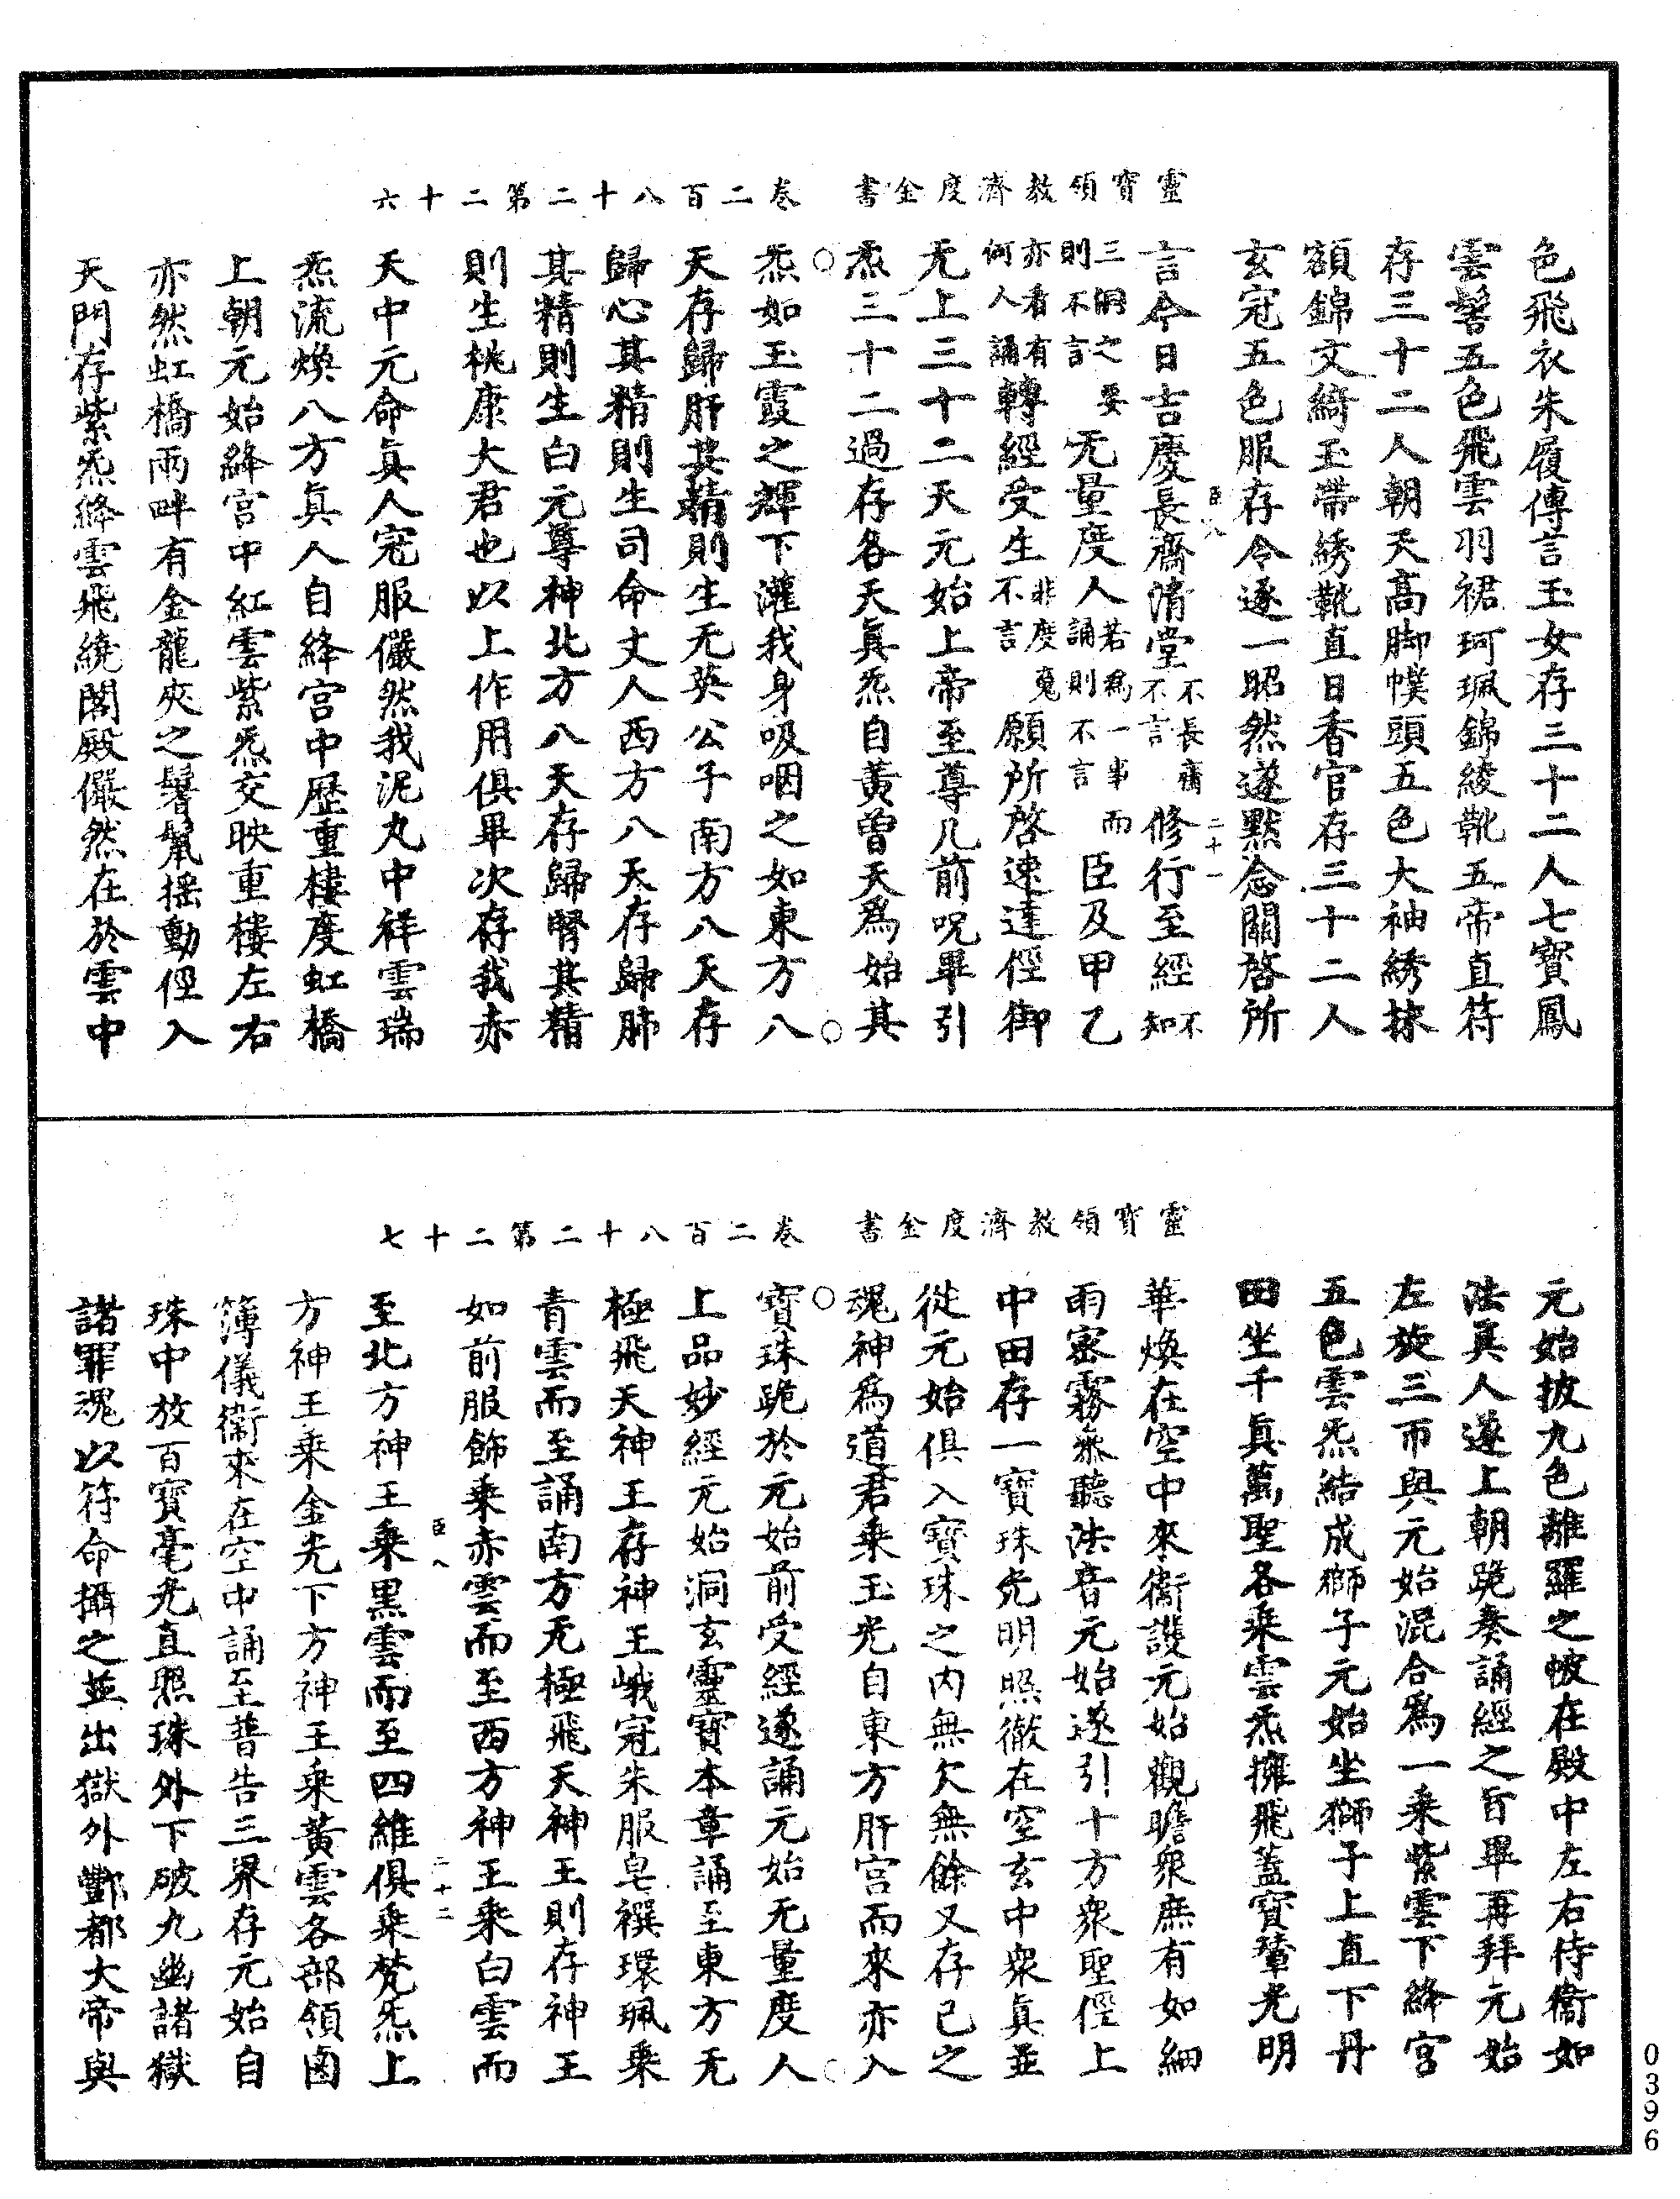 靈寶領教濟度金書　卷二百八十二第二十六
色飛衣朱履傳言玉女存三十二人七寶鳳
雲髻五色飛雲羽裙珂珮錦綾靴五帝直符
存三十二人朝天高脚幞頭五色大袖綉抹
額錦文綺玉帶綉靴直日香官存三十二人
玄冠五色服存令逐一昭然遂黙念關啓所
言今日吉慶長齋清堂不長齋不言修行至經不知
三洞之要則不言无量度人若爲一事而誦則不言臣及甲乙
亦看有何人誦轉經受生非度魂不言願所啓速達徑御
无上三十二天元始上帝至尊几前呪畢引
炁三十二過存各天眞炁自黃曾天爲始其
炁如玉霞之輝下灌我身吸咽之如東方八
天存歸肝其精則生无英公子南方八天存
歸心其精則生司命丈人西方八天存歸肺
其精則生白元尊神北方八天存歸腎其精
則生桃康大君也以上作用俱畢次存我赤
天中元命眞人冠服儼然我泥丸中祥雲瑞
炁流煥八方眞人自絳宮中歷重樓度虹橋
上朝元始絳宮中紅雲紫炁交映重樓左右
亦然虹橋兩畔有金龍夾之鬐鬣搖動徑入
天門存紫炁絳雲飛繞閣殿儼然在於雲中
臣八　二十一
靈寶領教濟度金書　卷二百八十二第二十七
元始披九色離羅之帔在殿中左右侍衛如
法眞人遂上朝跪奏誦經之旨畢再拜元始
左旋三帀與元始混合爲一乘紫雲下絳宮
五色雲炁結成獅子元始坐獅子上直下丹
田坐千眞萬聖各乘雲炁擁飛蓋寶輦光明
華煥在空中來衛護元始觀瞻衆庶有如細
雨密霧無聽法音元始遂引十方衆聖徑上
中田存一寶珠光明照徹在空玄中衆眞並
從元始俱入寶珠之內無欠無餘又存已之
魂神爲道君乘玉光自東方肝宮而來亦入
寶珠跪於元始前受經遂誦元始无量度人
上品妙經元始洞玄靈寶本章誦至東方无
極飛天神王存神王峨冠朱服皂襈環珮乘
青雲而至誦南方无極飛天神王則存神王
如前服飾乘赤雲而至西方神王乘白雲而
至北方神王乘黑雲而至四維俱乘梵炁上
方神王乘金光下方神王乘黃雲各部領鹵
簿儀衛來在空中誦至普告三界存元始自
珠中放百寶毫光直照珠外下破九幽諸獄
諸罪魂以符命攝之並出獄外酆都大帝與
臣八　二十二
0396